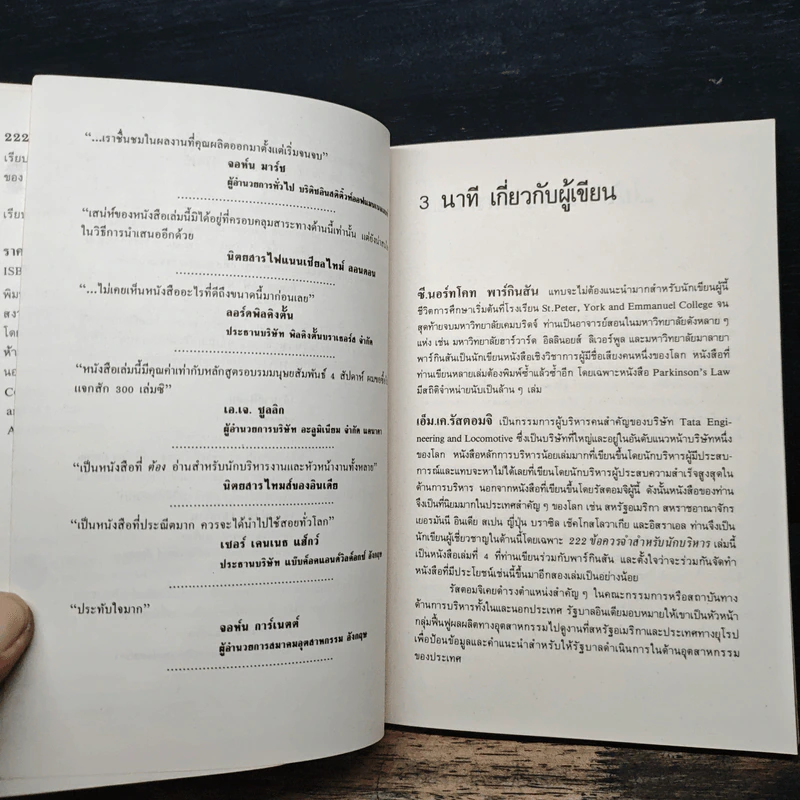 222
เรียบ
ของ
เรียบ
ราค
ISB
พิม
สงว
โดย
ห้า
นอ
Co
an
A
“...เราชื่นชมในผลงานที่คุณผลิตออกมาตั้งแต่เริ่มจนจบ”
จอห์น มาร์ช
ผู้อำนวยการทั่วไป บริติชอินสติติ้วท์ออฟแมนเนจ
“เสน่ห์ของหนังสือเล่มนี้มิได้อยู่ที่ครอบคลุมสาระทางด้านนี้เท่านั้น แต่ยัง
ในวิธีการนำเสนออีกด้วย
นิตยสารไฟแนนเชียลไทม์ ลอนดอน
“...ไม่เคยเห็นหนังสืออะไรที่ดีถึงขนาดนี้มาก่อนเลย”
ลอร์ดพิลคิงตั้น
ประธานบริษัท พิลคิงตั้นบราเธอร์ส จำกัด
“หนังสือเล่มนี้มีคุณค่าเท่ากับหลักสูตรอบรมมนุษยสัมพันธ์ 4 สัปดาห์
แจกสัก 300 เล่มซิ”
เอ.เจ. ชูลลิก
ผู้อำนวยการบริษัท อะลูมิเนียม จำกัด แคนาดา
“เป็นหนังสือที่ ต้อง อ่านสำหรับนักบริหารงานและหัวหน้างานทั้งหลาย”
นิตยสารไทมส์ของอินเดีย
“เป็นหนังสือที่ประณีตมาก ควรจะได้นำไปใช้สอยทั่วโลก”
เซอร์ เคนเนธ แฮ๊กว์
ประธานบริษัท แบบค็อคแอนด์วิลค็อกซ์ อังกฤษ
“ประทับใจมาก”
จอห์น การ์เนตต์
ผู้อำนวยการสมาคมอุตสาหกรรม อังกฤษ
3 นาที เกี่ยวกับผู้เขียน
ซี.นอร์ทโคท พาร์กินสัน แทบจะไม่ต้องแนะนำมากสำหรับนักเขียนผู้นี้
ชีวิตการศึกษาเริ่มต้นที่โรงเรียน St.Peter, York and Emmanuel College จน
สุดท้ายจบมหาวิทยาลัยเคมบริดจ์ ท่านเป็นอาจารย์สอนในมหาวิทยาลัยดังหลาย ๆ
แห่ง เช่น มหาวิทยาลัยฮาร์วาร์ด อิลลินอยส์ ลิเวอร์พูล และมหาวิทยาลัยมาลายา
พาร์กินสันเป็นนักเขียนหนังสือเชิงวิชาการผู้มีชื่อเสียงคนหนึ่งของโลก หนังสือที่
ท่านเขียนหลายเล่มต้องพิมพ์ซ้ำแล้วซ้ำอีก โดยเฉพาะหนังสือ Parkinson’s Law
มีสถิติจำหน่ายนับเป็นล้าน ๆ เล่ม
เอ็ม.เค.รัสตอมจิ เป็นกรรมการผู้บริหารคนสำคัญของบริษัท Tata Engi-
neering and Locomotive ซึ่งเป็นบริษัทที่ใหญ่และอยู่ในอันดับแนวหน้าบริษัทหนึ่ง
ของโลก หนังสือหลักการบริหารน้อยเล่มมากที่เขียนขึ้นโดยนักบริหารผู้มีประสบ-
การณ์และแทบจะหาไม่ได้เลยที่เขียนโดยนักบริหารผู้ประสบความสำเร็จสูงสุดใน
ด้านการบริหาร นอกจากหนังสือที่เขียนขึ้นโดยรัสตอมจิผู้นี้ ดังนั้นหนังสือของท่าน
จึงเป็นที่นิยมมากในประเทศสำคัญ ๆ ของโลก เช่น สหรัฐอเมริกา สหราชอาณาจักร
เยอรมันนี อินเดีย สเปน ญี่ปุ่น บราซิล เช็คโกสโลวาเกีย และอิสราเอล ท่านจึงเป็น
นักเขียนผู้เชี่ยวชาญในด้านนี้โดยเฉพาะ 222 ข้อควรจำสำหรับนักบริหาร เล่มนี้
เป็นหนังสือเล่มที่ 4 ที่ท่านเขียนร่วมกับพาร์กินสัน และตั้งใจว่าจะร่วมกันจัดทำ
หนังสือที่มีประโยชน์เช่นนี้ขึ้นมาอีกสองเล่มเป็นอย่างน้อย
รัสตอมจิเคยดำรงตำแหน่งสำคัญ ๆ ในคณะกรรมการหรือสถาบันทาง
ด้านการบริหารทั้งในและนอกประเทศ รัฐบาลอินเดียมอบหมายให้เขาเป็นหัวหน้า
กลุ่มฟื้นฟูผลผลิตทางอุตสาหกรรมไปดูงานที่สหรัฐอเมริกาและประเทศทางยุโรป
เพื่อป้อนข้อมูลและคำแนะนำสำหรับให้รัฐบาลดำเนินการในด้านอุตสาหกรรม
ของประเทศ